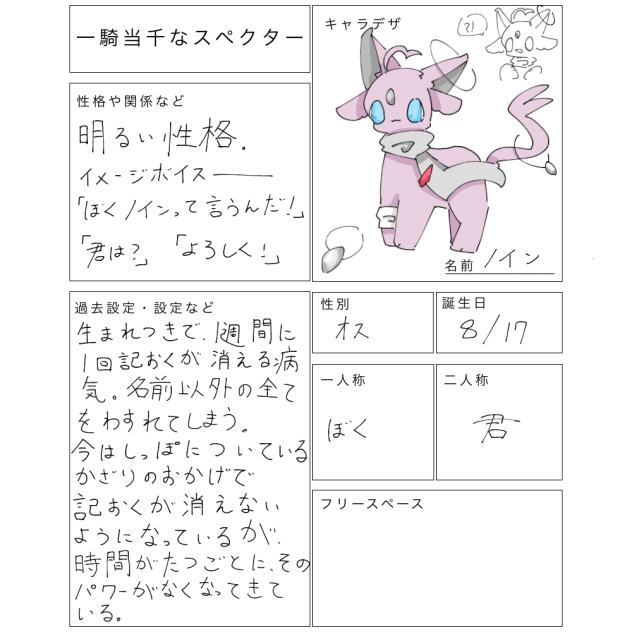 一騎当千なスペクター
性格や関係など
明るい性格.
イメージボイス――
「ぼくノインって言うんだ!」
「君は?」 「よろしく!」
キャラデザ
?!
名前 ノイン
過去設定・設定など
生まれつきで、1週間に
1回記おくが消える病
気。名前以外の全て
をわすれてしまう。
今はしっぽについている
かざりのおかげで
記おくが消えない
ようになっているが、
時間がたつごとに、その
パワーがなくなってきて
いる。
性別
オス
誕生日
8/17
一人称
ぼく
二人称
君
フリースペース